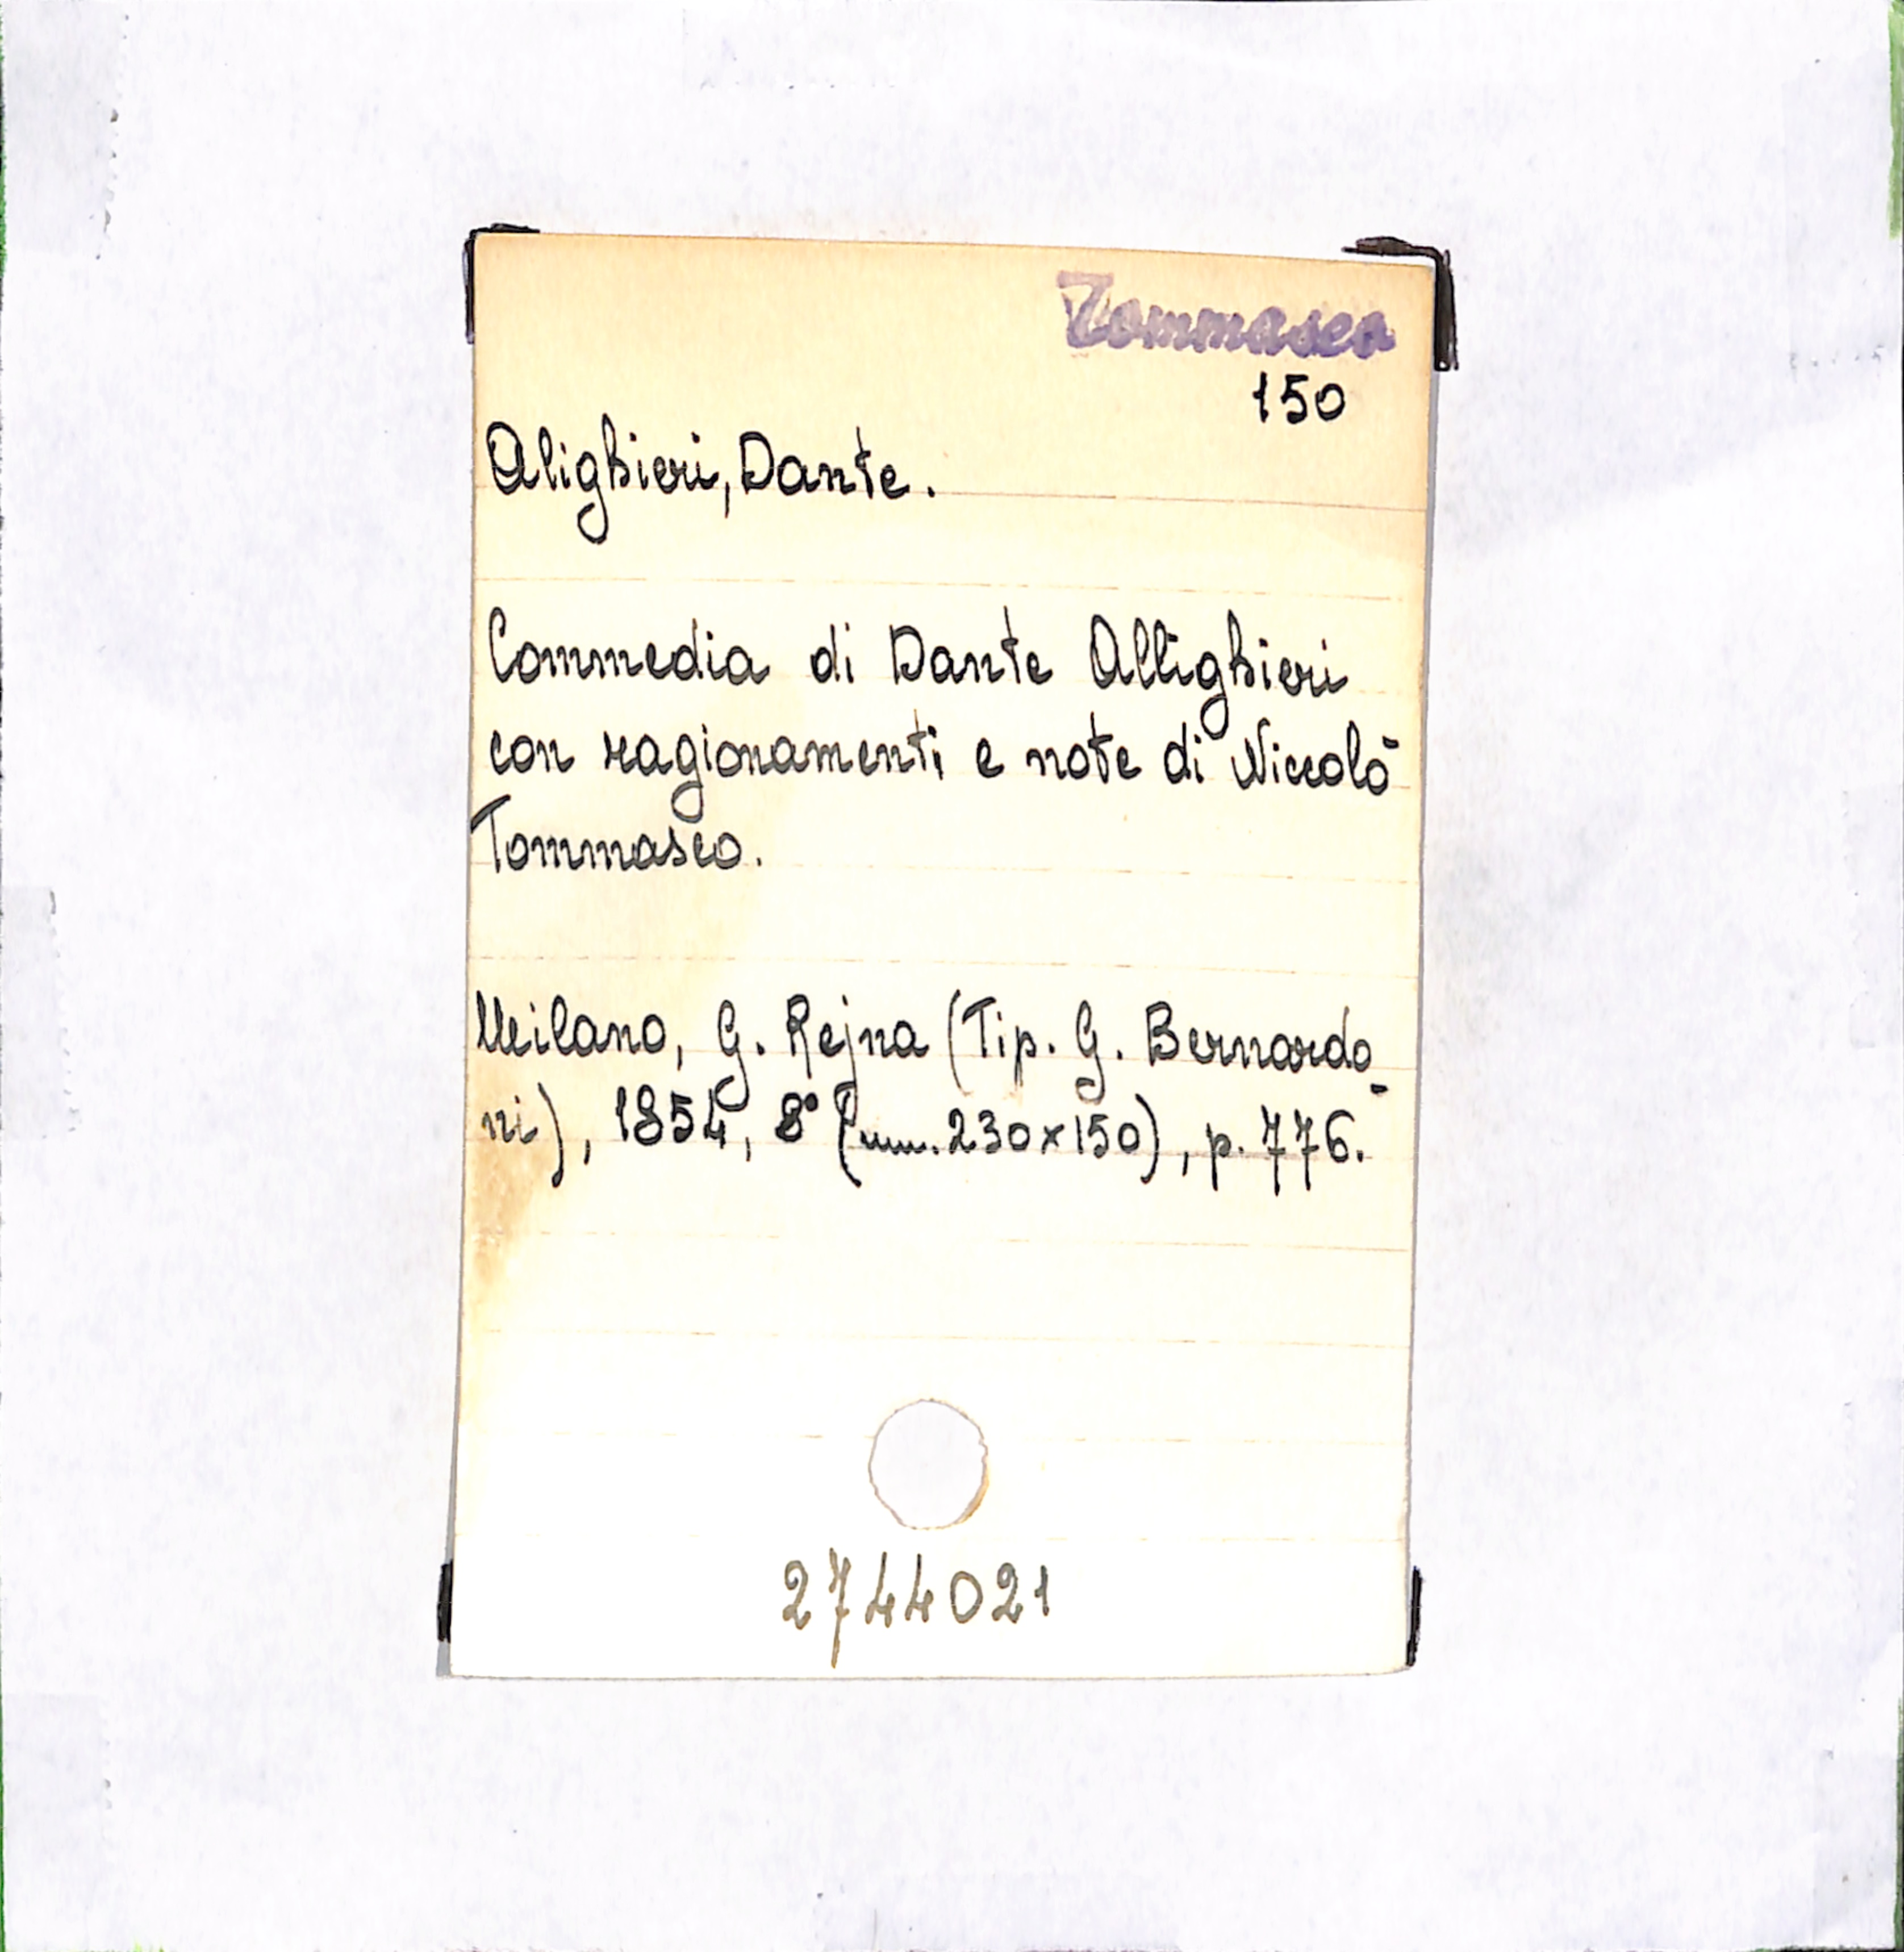 Tommaseo
150
Alighieri, Dante.
Commedia di Dante Allighieri
con ragionamenti e note di Niccolò
Tommaseo.
Milano, G. Rejna (Tip. G. Bernardo-
ni), 1854, 8° (mm. 230x150), p. 776.
2744021